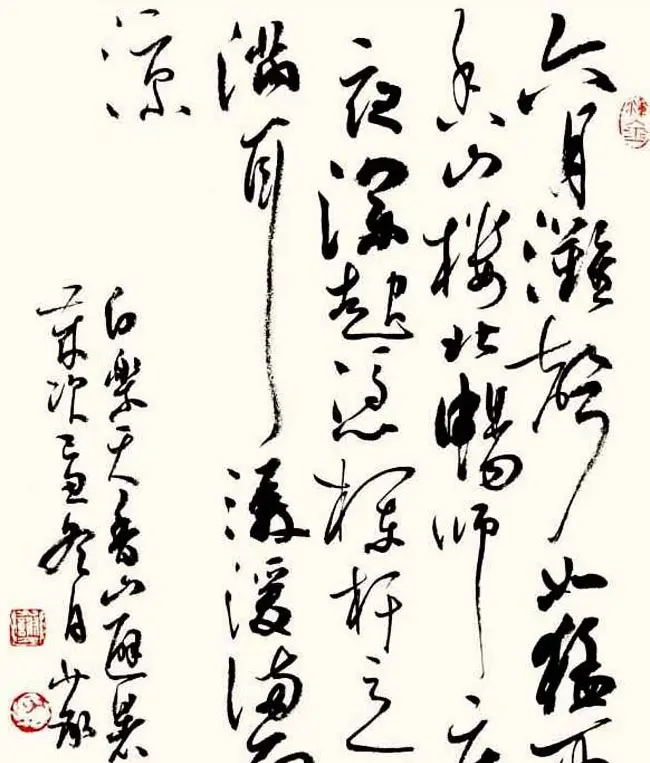 六月灘聲如猛雨
香山樓北暢師房
夜深起憑欄杆立
滿耳潺湲滿面
涼
白樂天香山避暑
歲次冬月